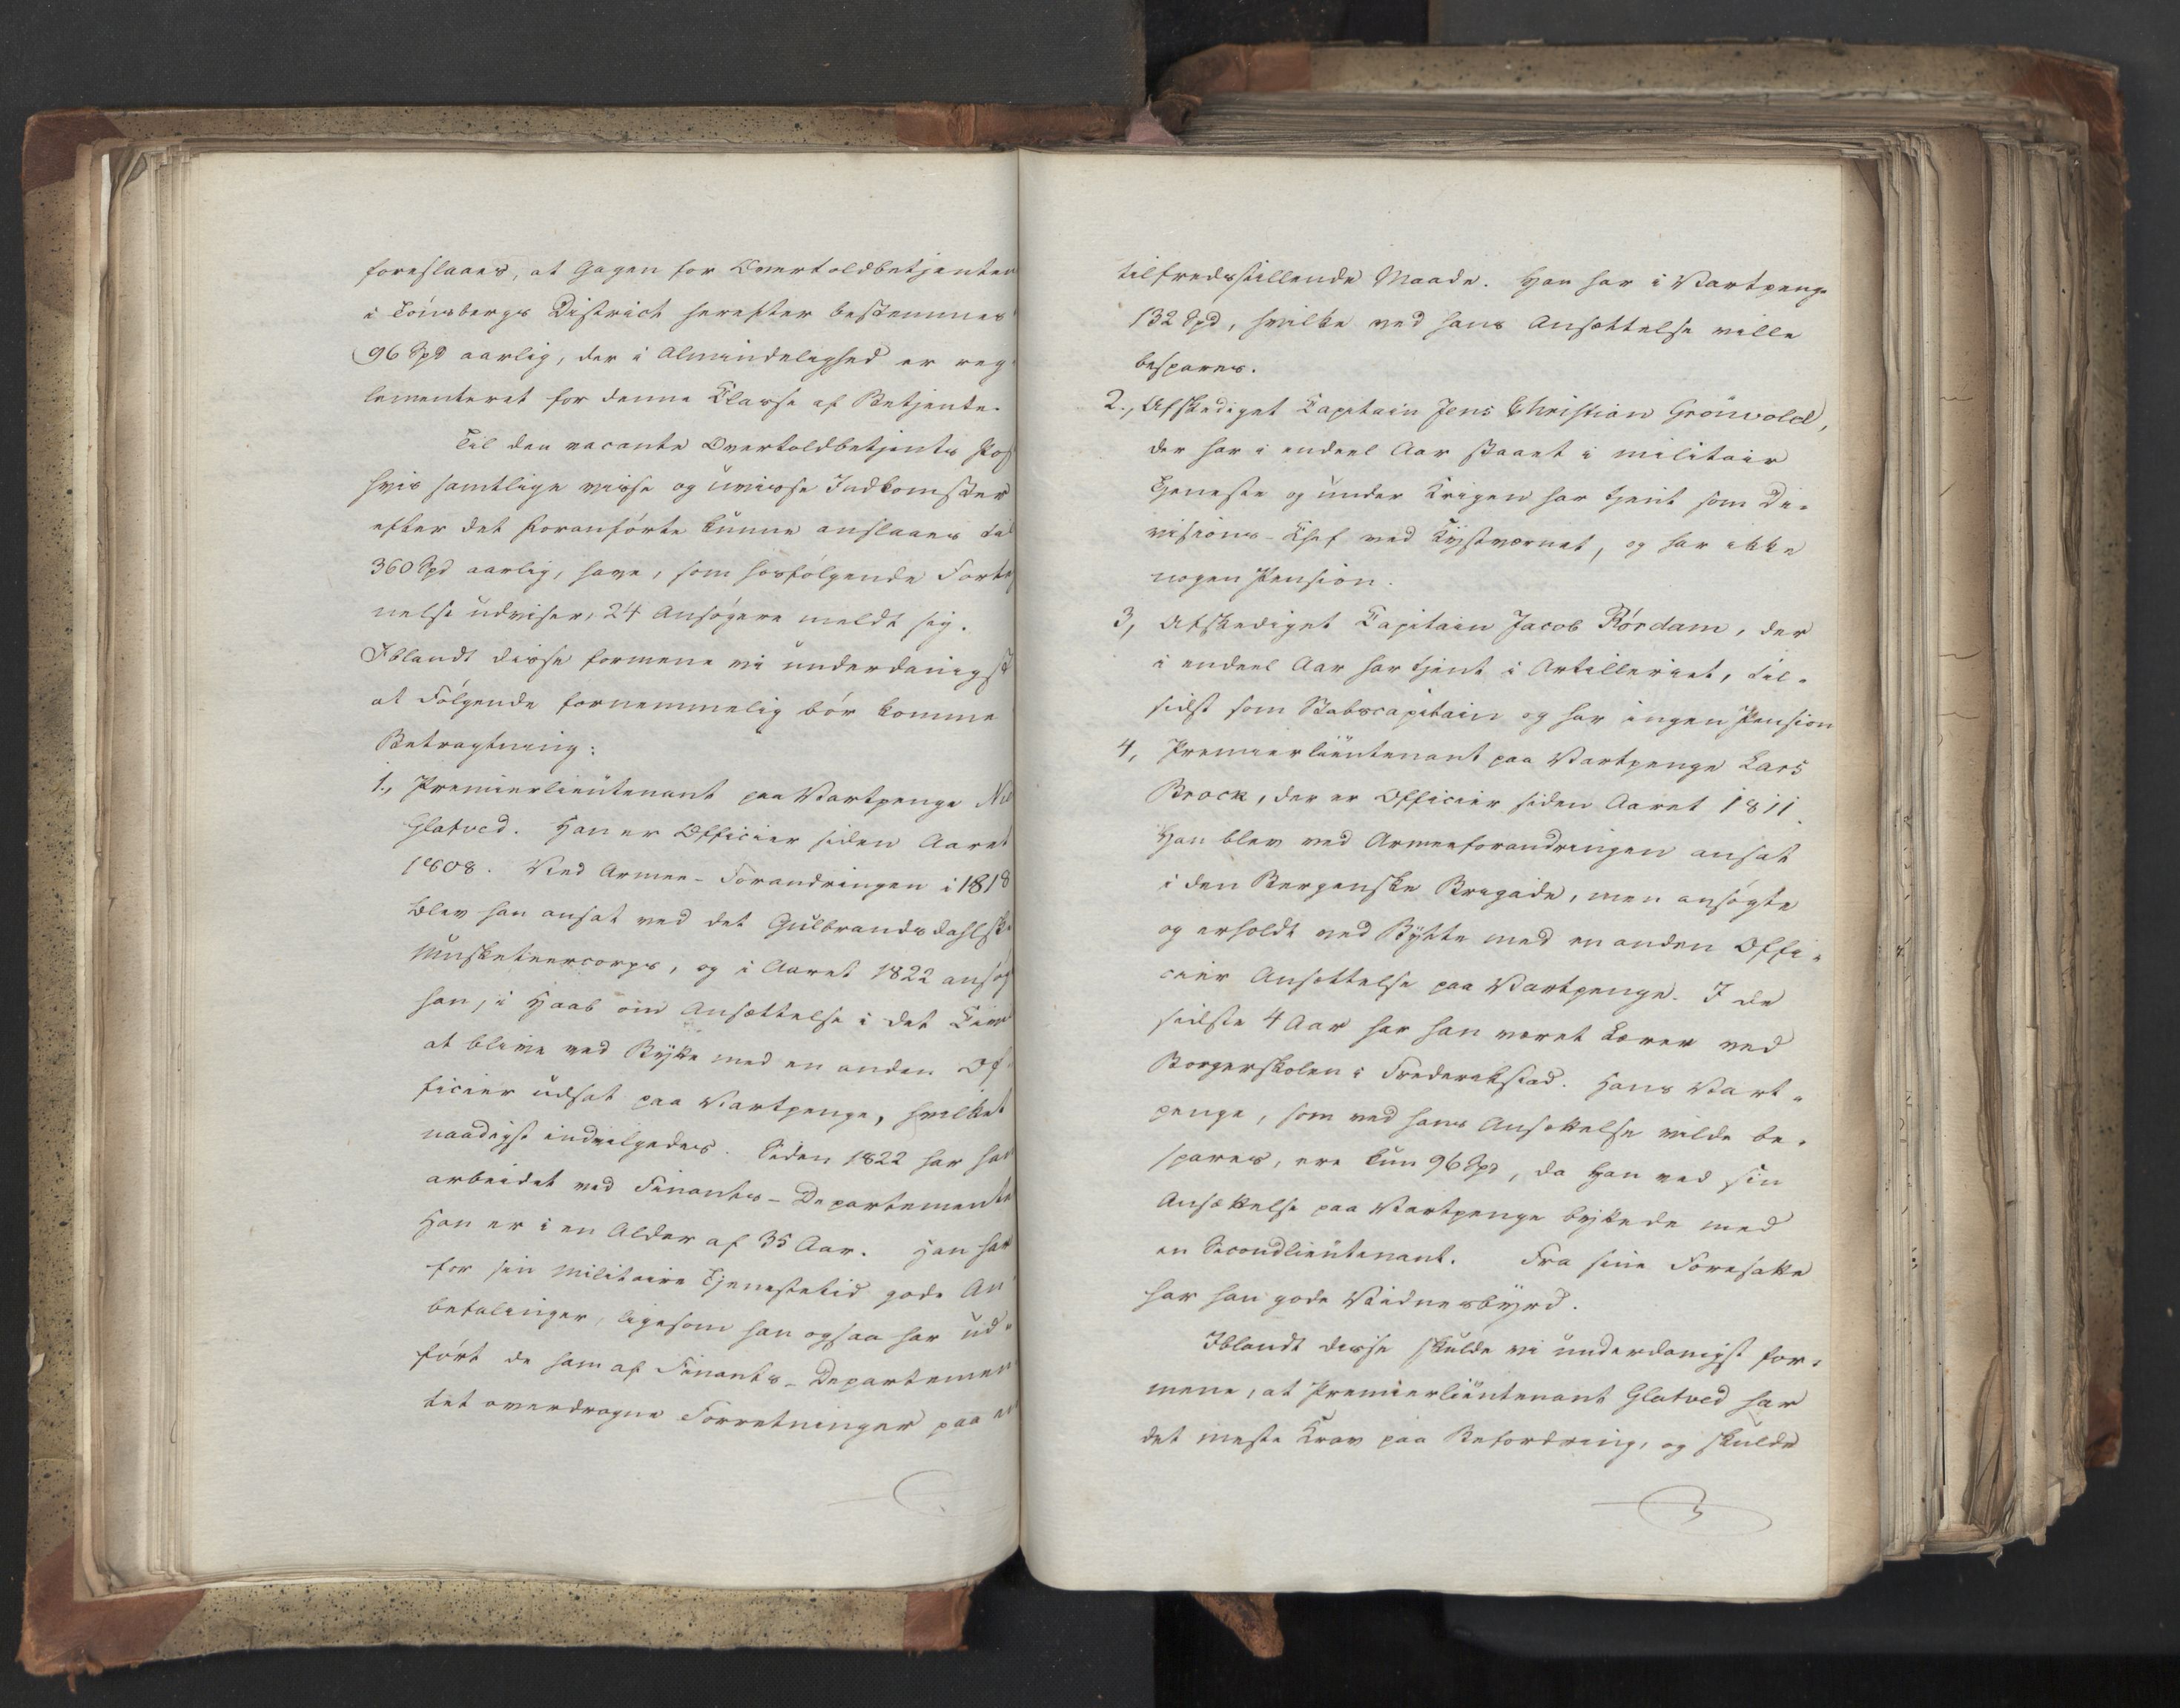 foreslaaes, at Gagen for Overtoldbetjenten
i Tönsbergs District herefter bestemmes
96 Spd aarlig, der i Almindelighed er reg
lementeret for denne Classe af Betjente.
Til den vacante Overtoldbetjents Post
hvis samtlige visse og uvisse Indkomster
efter det Foranförte kunne anslaaes til
360 Spd aarlig, have, som hosfölgende Forteg
nelse udviser, 24 Ansögere meldt sig.
Iblandt disse formene vi underdanigst
at Fölgende fornemmelig bör komme
Betragtning:
1., Premierlieutenant paa Vartpenge
Glatved. Han er Officier siden Aaret
1808. Ved Armee-Forandringen i 1818
blev han ansat ved det Gulbrandsdahlske
Musketeercorps, og i Aaret 1822 ansög
han, i Haab om Ansættelse i det Civ
at blive ved Bytte med en anden Of
ficier udsat paa Vartpenge, hvilket
naadigst indvilgedes. Siden 1822 har han
arbeidet ved Finants-Departemente
Han er i en Alder af 35 Aar. Han har
for sin militaire Tjenestetid gode An
befalinger, ligesom han ogsaa har ud-
fört de ham af Finants-Departemen
tet overdragne Forretninger paa en
tilfredsstillende Maade. Han har i Vartpenge
132 Spd, hvilke ved hans Ansættelse ville
bespares.
2., Afskediget Capitain Jens Christian Grönvold,
der har i endeel Aar staaet i militair
Tjeneste og under Krigen har tjent som Di-
visions-Chef ved Kystværnet, og har ikke
nogen Pension.
3, Afskediget Capitain Jacob Rördam, der
i endeel Aar har tjent i Artilleriet, til-
sidst som Stabscapitain og har ingen Pension
4, Premierlieutenant paa Vartpenge Lars
Brock, der er Officier siden Aaret 1811.
Han blev ved Armeeforandringen ansat
i den Bergenske Brigade, men ansögte
og erholdt ved Bytte med en anden Offi-
cier Ansættelse paa Vartpenge. I de
sidste 4 Aar har han været Lærer ved
Borgerskolen i Frederikstad. Hans Vart-
penge, som ved hans Ansættelse vilde be-
spares, ere kun 96 Spd, da Han ved sin
Ansættelse paa Vartpenge byttede med
en Secondlieutenant. Fra sine Foresatte
har han gode Vidnesbyrd.
Iblandt disse skulde vi underdanigst for-
mene, at Premierlieutenant Glatved har
det meste Krav paa Befordring, og skulde